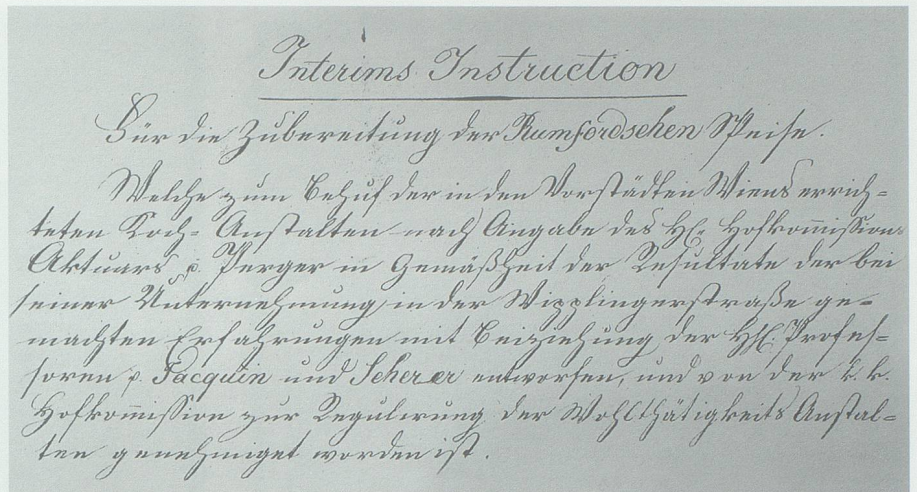 Interims Instruction
Für die Zubereitung der Rumfordschen Speise.
Welche zum Behuf der in den Vorstädten Wiens errich=
teten Koch= Anstalten nach Angabe des H: Hofkom̅ission
Aktuars v. Perger in Gemäßheit der Resultate der bei
seiner Unternehmung in der Wipplingerstraße ge=
machten Erfahrungen mit Beiziehung der HH. Profes=
soren v. Jacquin und Scherer entworfen, und von der k. k.
Hofkom̅ission zur Regulirung der Wohlthätigkeits Anstal=
ten genehmiget worden ist.